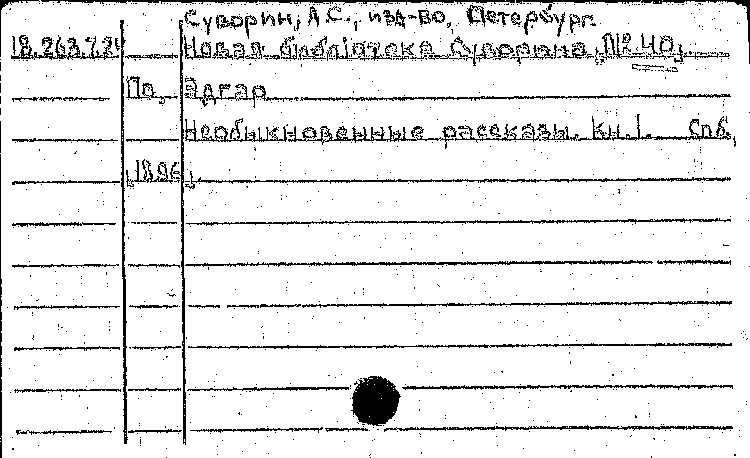 Суворин, А.С., изд-во, Петербург.
18.263.7.24 Новая библіотека Суворина, [№ 40].
По, Эдгар
Необыкновенные рассказы. Кн. 1. Спб.,
[1896].